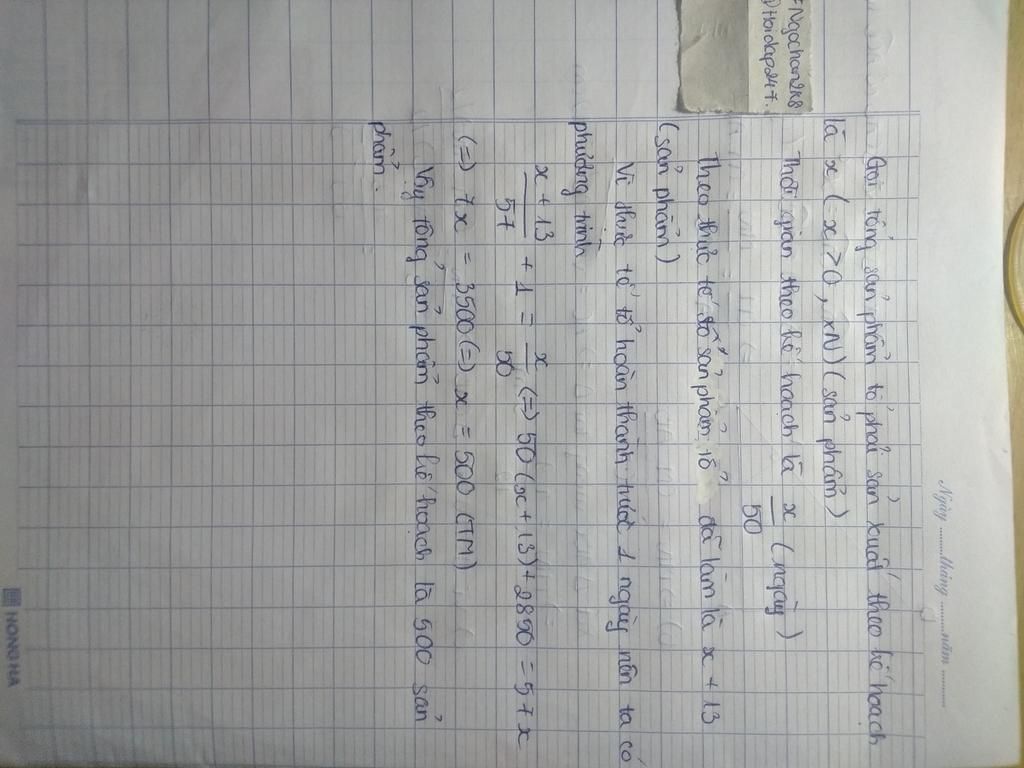 Ngày ........tháng ........năm .........
#Ngochan2k8
@Hoidap247.
Gọi tổng sản phẩm tổ phải sản xuất theo kế hoạch
là x ( x > 0 , xN ) ( sản phẩm )
Thời gian theo kế hoạch là x/50 ( ngày )
Theo thực tế số sản phẩm tổ đã làm là x + 13
(sản phẩm)
Vì thực tế tổ hoàn thành trước 1 ngày nên ta có
phương trình
x + 13/57 + 1 = x/50 (=) 50 (x + 13) + 2850 = 57x
(=) 7x = 3500 (=) x = 500 (TM)
Vậy tổng sản phẩm theo kế hoạch là 500 sản
phẩm.
HONG HA